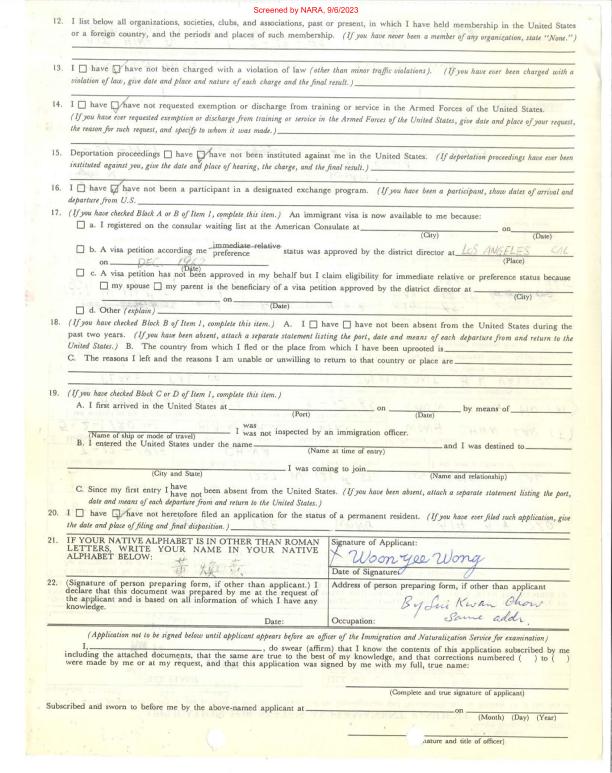 Screened by NARA, 9/6/2023
12. I list below all organizations, societies, clubs, and associations, past or present, in which I have held membership in the United States
or a foreign country, and the periods and places of such membership. (If you have never been a member of any organization, state "None.")
13. I ☐ have ☑ have not been charged with a violation of law (other than minor traffic violations). (If you have ever been charged with a
violation of law, give date and place and nature of each charge and the final result.)
14. I ☐ have ☑ have not requested exemption or discharge from training or service in the Armed Forces of the United States.
(If you have ever requested exemption or discharge from training or service in the Armed Forces of the United States, give date and place of your request,
the reason for such request, and specify to whom it was made.)
15. Deportation proceedings ☐ have ☑ have not been instituted against me in the United States. (If deportation proceedings have ever been
instituted against you, give the date and place of hearing, the charge, and the final result.)
16. I ☐ have ☑ have not been a participant in a designated exchange program. (If you have been a participant, show dates of arrival and
departure from U.S.
17. (If you have checked Block A or B of Item 1, complete this item.) An immigrant visa is now available to me because:
☐ a. I registered on the consular waiting list at the American Consulate at on
(City) (Date)
☐ b. A visa petition according me immediate relative preference status was approved by the district director at LOS ANGELES CAL
on DEC. 1967 (Date) (Place)
☐ c. A visa petition has not been approved in my behalf but I claim eligibility for immediate relative or preference status because
☐ my spouse ☐ my parent is the beneficiary of a visa petition approved by the district director at
(City)
on
(Date)
☐ d. Other (explain)
18. (If you have checked Block B of Item 1, complete this item.) A. I ☐ have ☐ have not been absent from the United States during the
past two years. (If you have been absent, attach a separate statement listing the port, date and means of each departure from and return to the
United States.) B. The country from which I fled or the place from which I have been uprooted is
C. The reasons I left and the reasons I am unable or unwilling to return to that country or place are
19. (If you have checked Block C or D of Item 1, complete this item.)
A. I first arrived in the United States at on by means of
(Port) (Date)
I was was not inspected by an immigration officer.
(Name of ship or mode of travel)
B. I entered the United States under the name and I was destined to
(Name at time of entry)
I was coming to join
(City and State) (Name and relationship)
C. Since my first entry I have have not been absent from the United States. (If you have been absent, attach a separate statement listing the port,
date and means of each departure from and return to the United States.)
20. I ☐ have ☑ have not heretofore filed an application for the status of a permanent resident. (If you have ever filed such application, give
the date and place of filing and final disposition.)
21. IF YOUR NATIVE ALPHABET IS IN OTHER THAN ROMAN
LETTERS, WRITE YOUR NAME IN YOUR NATIVE
ALPHABET BELOW:
黃
Signature of Applicant:
X Woon Yee Wong
Date of Signature:
22. (Signature of person preparing form, if other than applicant.) I
declare that this document was prepared by me at the request of
the applicant and is based on all information of which I have any
knowledge.
Date:
Address of person preparing form, if other than applicant
By Sui Kwan Chow
Same addr.
Occupation:
(Application not to be signed below until applicant appears before an officer of the Immigration and Naturalization Service for examination)
I, , do swear (affirm) that I know the contents of this application subscribed by me
including the attached documents, that the same are true to the best of my knowledge, and that corrections numbered ( ) to ( )
were made by me or at my request, and that this application was signed by me with my full, true name:
(Complete and true signature of applicant)
Subscribed and sworn to before me by the above-named applicant at on
(Month) (Day) (Year)
ature and title of officer)